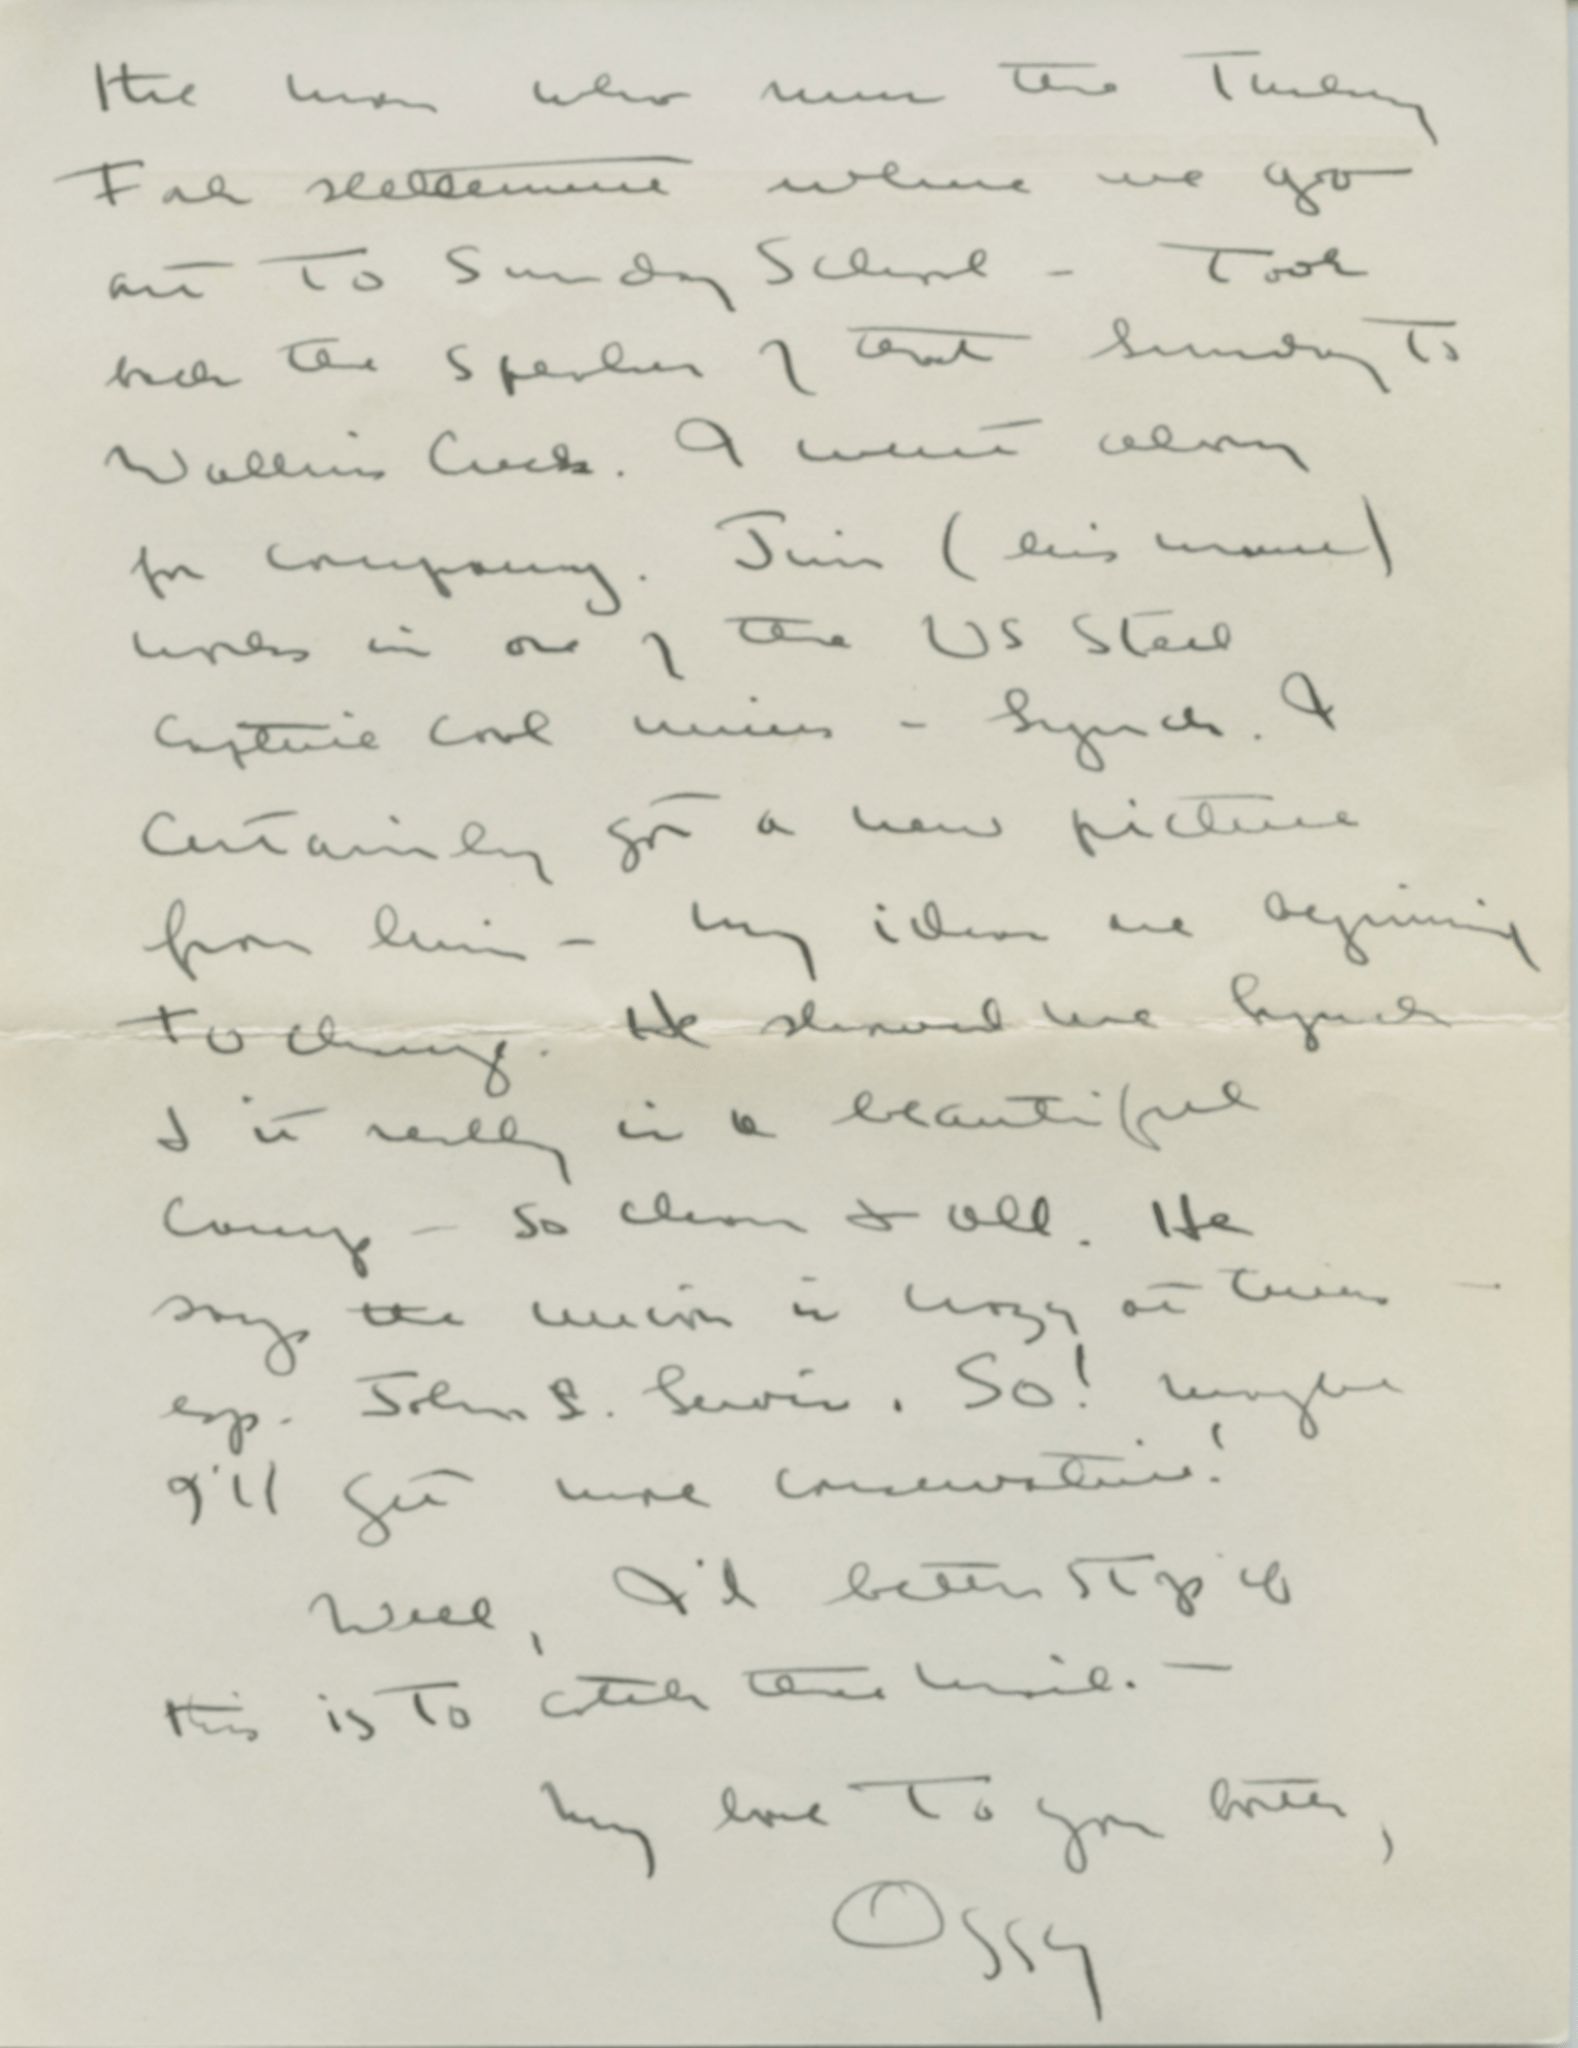 the man who runs the Turkey
Fork settlement where we go
out to Sunday School - Took
back the speaker of that Sunday to
Wallins Creek. I went along
for company. Jim (his name)
works in one of the US Steel
Captive Coal mines - Lynch. I
Certainly got a new picture
from him - my ideas are begining
to change. He showed me Lynch
& it really is a beautiful
Camp - so clean & all. He
says the union is crazy at times -
esp. John L. Lewis. So! maybe
I'll get more conservative!
Well, I'd better stop if
this is to catch the mail. -
My love to you both,
Ossy